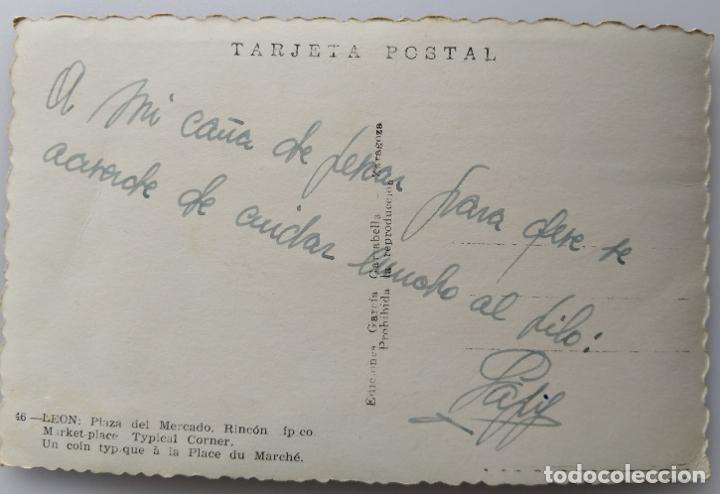 TARJETA POSTAL
A mi caña de pescar para que se
acuerde de cuidar mucho al filo.
Ediciones García Garrabella - Zaragoza
Prohibida la reproducción
46 — LEON: Plaza del Mercado. Rincón íp.co
Market-place Typical Corner.
Un coin typ.que à la Place du Marché.
todocoleccion